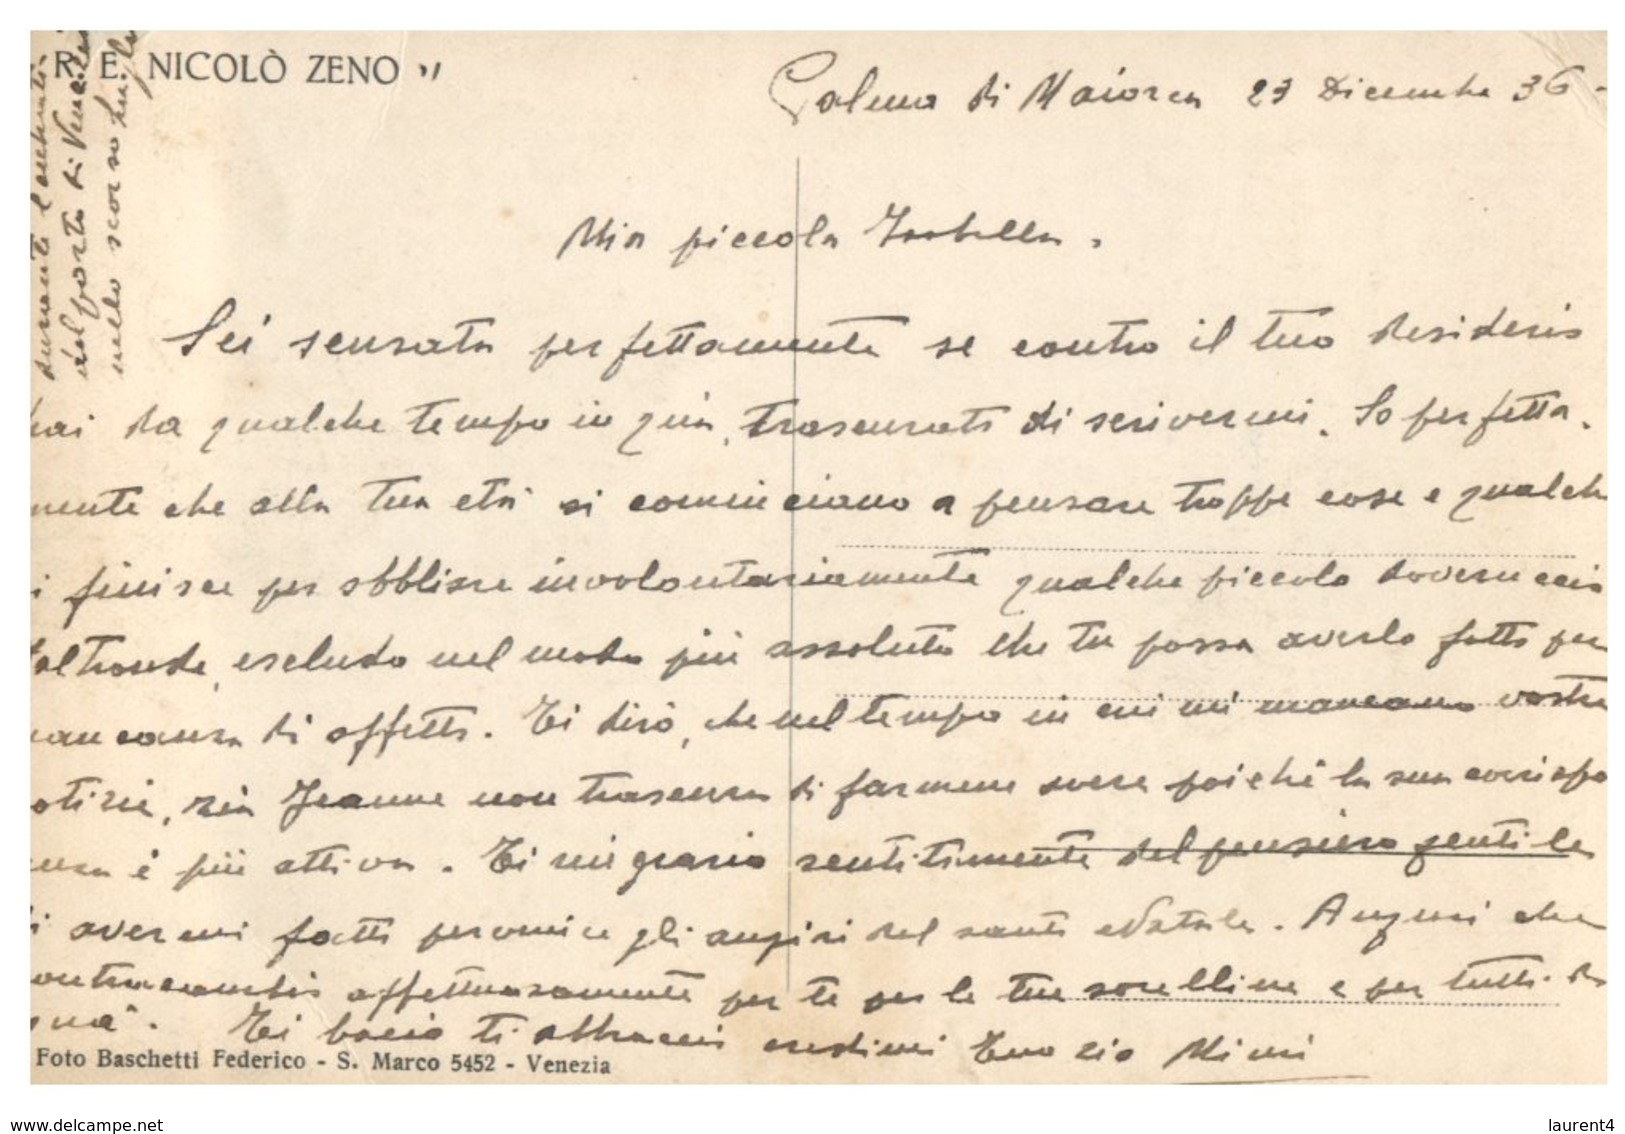 R. E. NICOLÒ ZENO "
Palma di Maiorca 23 Dicembre 36 -
durante l'
nel porto di Venezia
nello scorso luglio
Mia piccola Isabella.
Sei scusata perfettamente se contro il tuo desiderio
hai da qualche tempo in qua, trascurato di scrivermi. So perfetta-
mente che alla tua età si cominciano a pensare troppe cose e qualche
si finisce per obbliare involontariamente qualche piccolo doveruccio
d'altronde, escludo nel modo più assoluto che tu possa averlo fatto per
mancanza di affetto. Ti dirò, che nel tempo in cui mi mancano vostre
notizie, zia Jeanne non trascura di farmene avere poiché la sua corrispon
denza è più attiva. Ti ringrazio sentitamente del pensiero gentile
di avermi fatto pervenire gli auguri del santo Natale. Auguri che
contraccambio affettuosamente per te per le tue sorelline e per tutti di
qua. Ti bacio ti abbraccio credimi tuo zio Mimi
Foto Baschetti Federico - S. Marco 5452 - Venezia
www.delcampe.net
laurent4